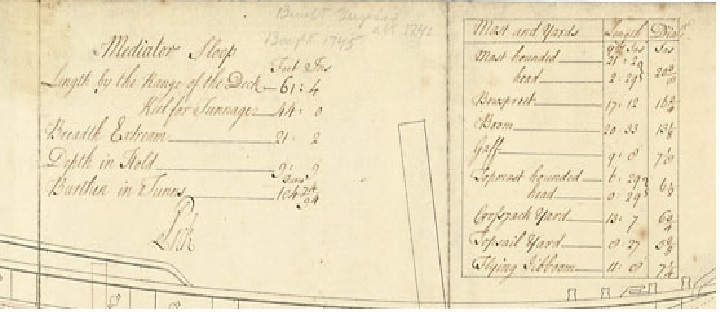 Built Virginia abt 1742
Bought 1745
Mediator Sloop
Feet Ins
Length by the Range of the Deck 61 : 4
Keel for Tunnage 44 : 0
Breadth Extream 21 : 2
Depth in Hold 9 : 9
Burthen in Tunns 104
Mast and Yards Length Diar.
Yds Ins Ins
Mast hounded 21 : 20
head 2 : 29
Bowsprit 17 : 12
Boom 20 : 33
Gaff 9 : 0
Topmast hounded 6 : 29
head 0 : 29
Crossjack Yard 13 : 7
Topsail Yard 8 : 27
Flying Jibboom 11 : 0